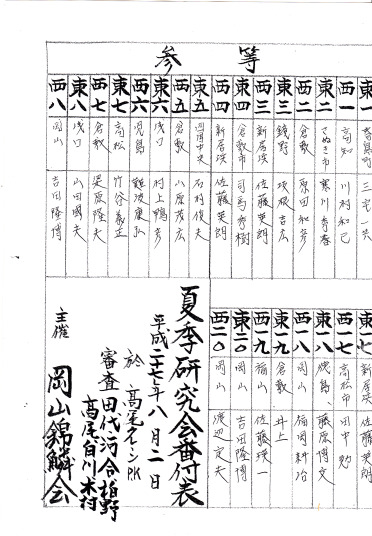 参等
東一 三宅
西一 高知 川村和己
東二 さぬき市 寒川秀春
西二 倉敷 原田和彦
東三 坂根吉広
西三 新居浜 佐藤英朗
東四 倉敷市 司馬秀樹
西四 新居浜 佐藤英朗
東五 四国中央 石村俊夫
西五 倉敷 小原茂広
東六 浅口 村上鴨彦
西六 児島 難波康弘
東七 高松 竹谷義正
西七 倉敷 栗原隆夫
東八 浅口 山田國夫
西八 岡山 吉田隆博
東一七 新居浜 佐藤英朗
西一七 高松市 田中勉
東一八 徳島 藤原博文
西一八 岡山 福岡耕治
東一九 倉敷 井上
西一九 福山 佐藤瑛一
東二〇 岡山 吉田隆博
西二〇 岡山 渡辺定夫
夏季研究会番付表
平成二十七年八月二日
於 高尾クイーンPK
審査 田代 河合 柏野
高尾 白川 木村
主催 岡山錦鱗会